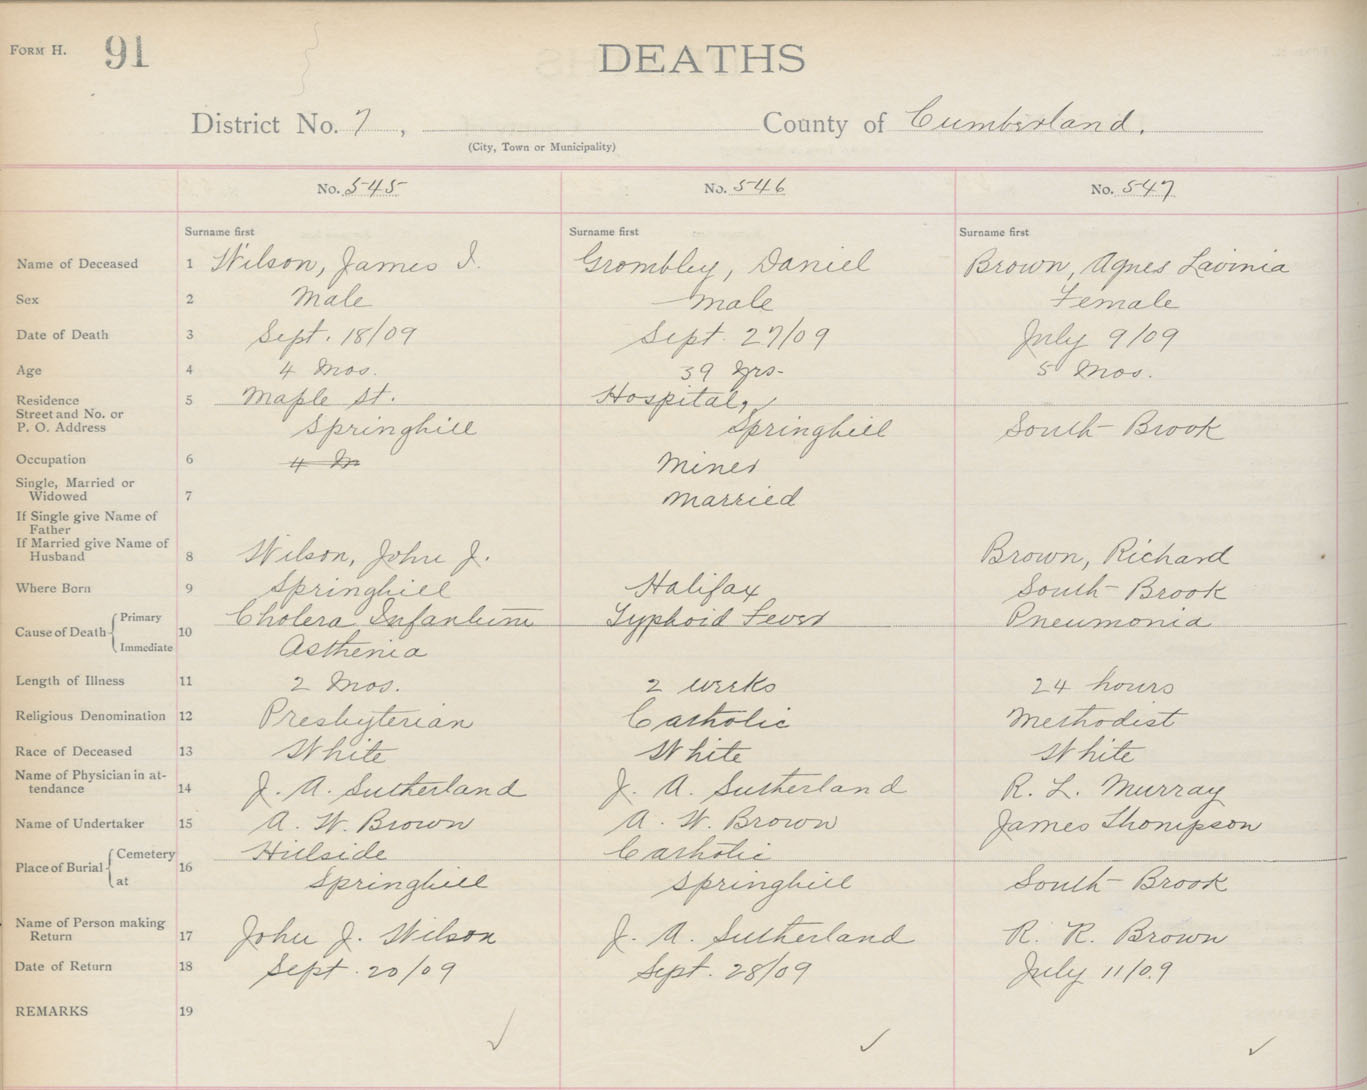 FORM H. 91
DEATHS
District No. 7, County of Cumberland.
(City, Town or Municipality)
No. 545 No. 546 No. 547
Surname first Surname first Surname first
Name of Deceased 1 Wilson, James I. Grombley, Daniel Brown, Agnes Lavinia
Sex 2 Male Male Female
Date of Death 3 Sept. 18/09 Sept. 27/09 July 9/09
Age 4 4 Mos. 39 yrs. 5 Mos.
Residence 5 Maple St. Hospital,
Street and No. or
P. O. Address Springhill Springhill South Brook
Occupation 6 4 M Miner
Single, Married or
Widowed 7 Married
If Single give Name of
Father
If Married give Name of
Husband 8 Wilson, John J. Brown, Richard
Where Born 9 Springhill Halifax South Brook
Cause of Death Primary 10 Cholera Infantum Typhoid Fever Pneumonia
Immediate Asthenia
Length of Illness 11 2 Mos. 2 weeks 24 hours
Religious Denomination 12 Presbyterian Catholic Methodist
Race of Deceased 13 White White White
Name of Physician in at-
tendance 14 J. A. Sutherland J. A. Sutherland R. L. Murray
Name of Undertaker 15 A. W. Brown A. W. Brown James Thompson
Place of Burial Cemetery 16 Hillside Catholic
at Springhill Springhill South Brook
Name of Person making
Return 17 John J. Wilson J. A. Sutherland R. R. Brown
Date of Return 18 Sept. 20/09 Sept. 28/09 July 11/09
REMARKS 19